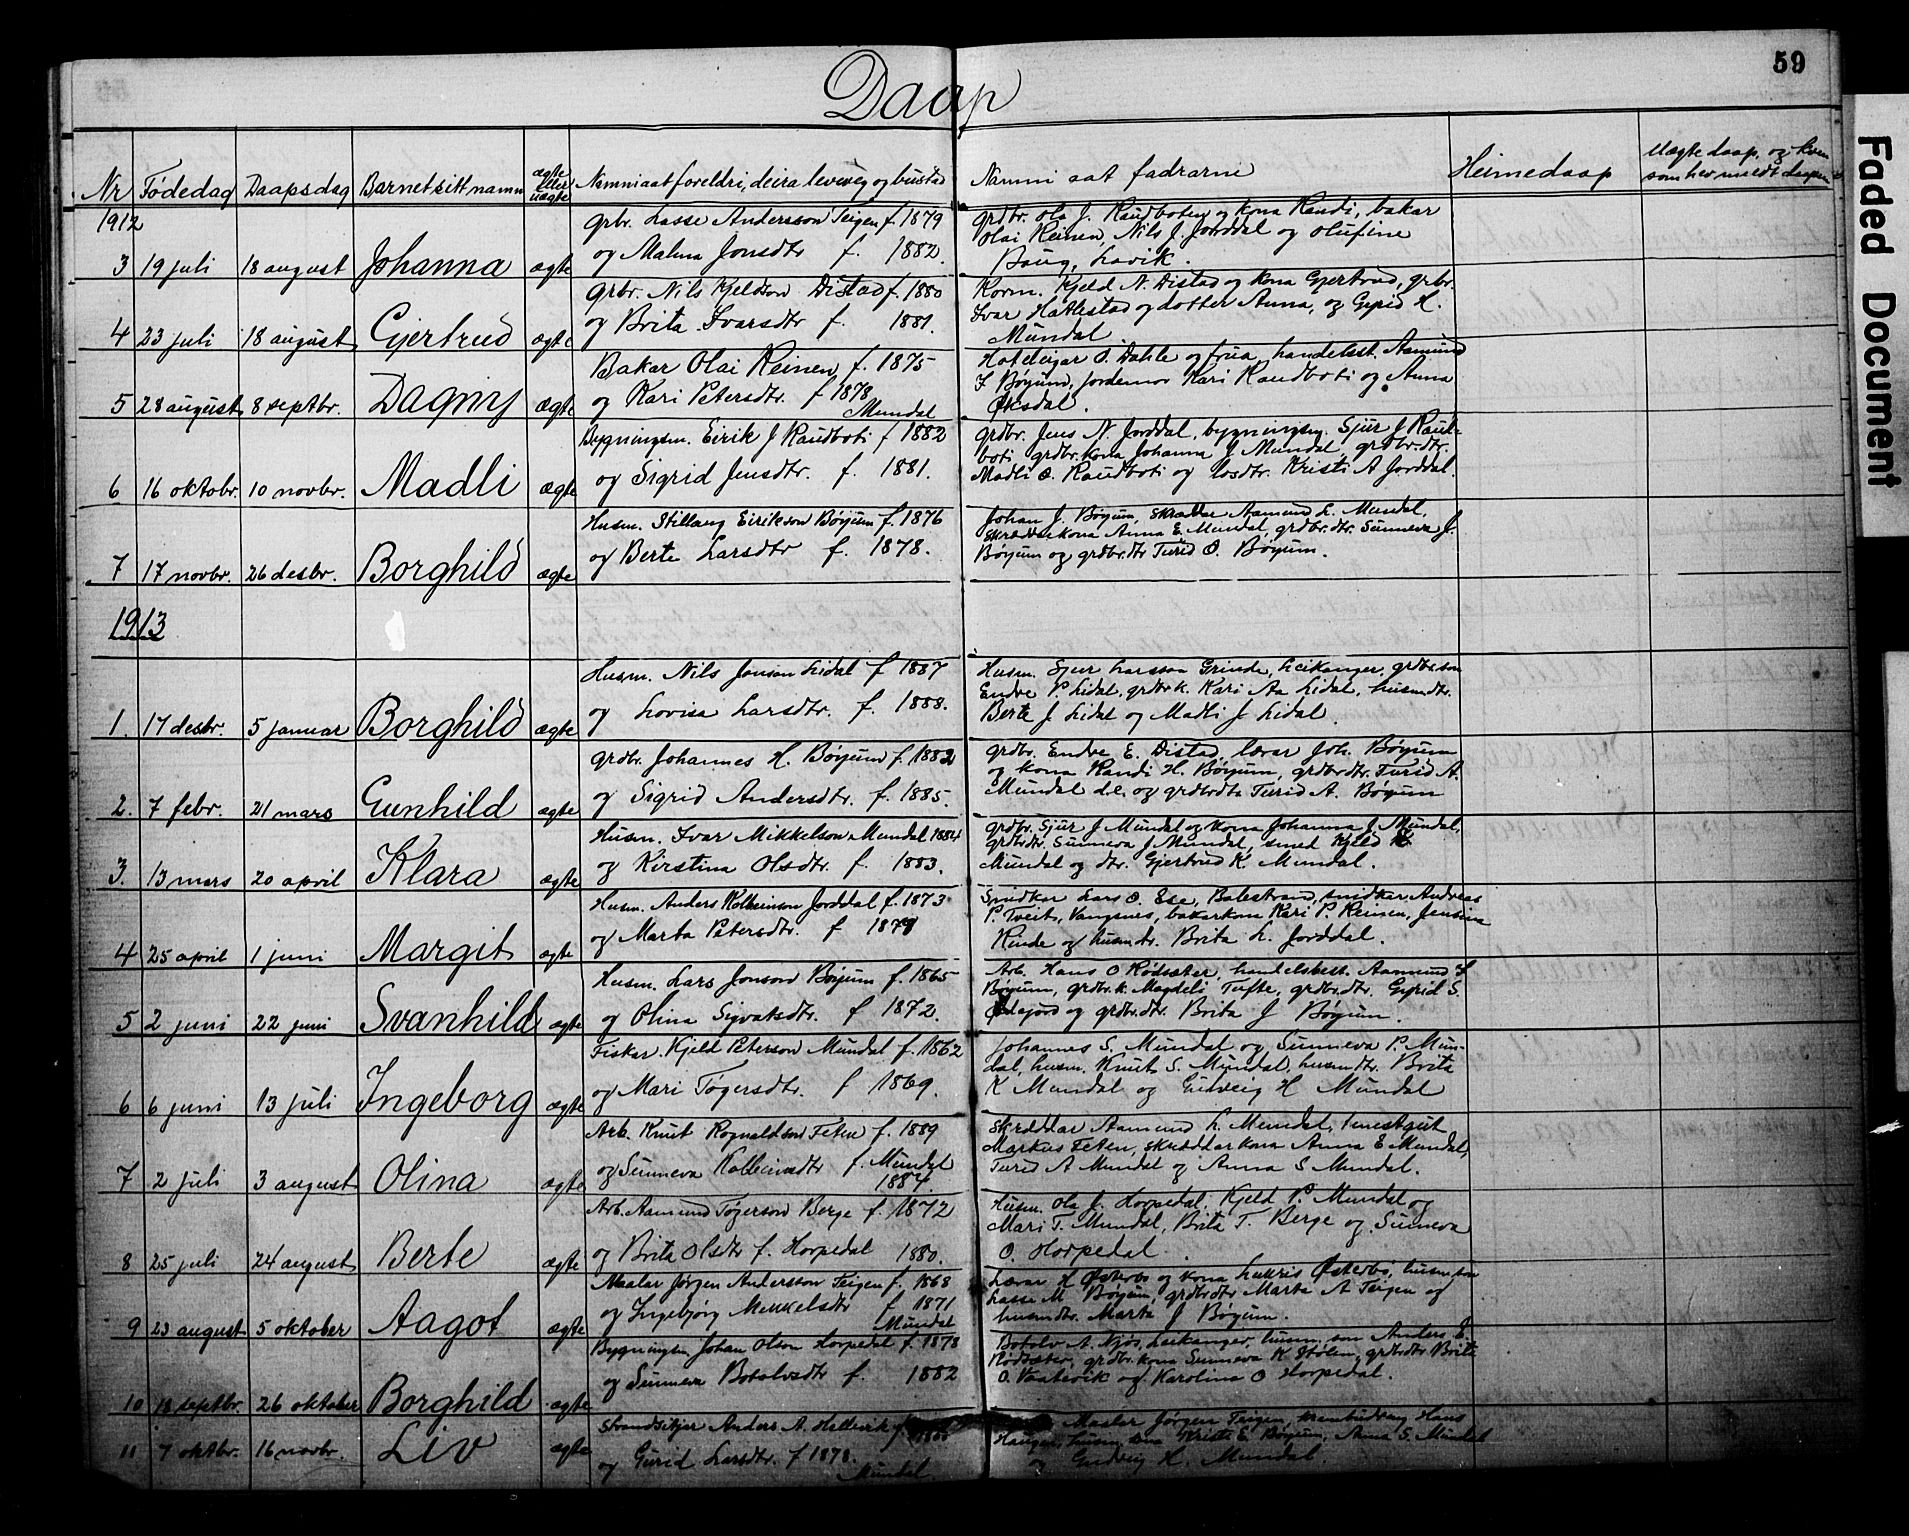 59
Daap
Nr Fødedag Daapsdag Barnet sitt namn ægte eller uægte Namni aat foreldri, deira leveveg og bustad Namni aat fadrarne Heimedaap Uægte daap, og kven som hev meldt daapen
1912
3 19 juli 18 august Johanna ægte
grbr. Lasse Andersson Teigen f. 1879
og Malena Jonsdtr f. 1882.
grdbr. Ola J. Raudboten og kona Randi, bakar
Olai Reinen, Nils J. Jorddal og Olufine
Baug, Lavik.
4 23 juli 18 august Gjertrud ægte
grbr. Nils Kjeldson Distad f. 1880
og Brita Ivarsdtr f. 1881.
Korm. Kjeld N. Distad og kona Gjertrud, grbr.
Ivar Hatlestad og dotter Anna, og Gyrid H.
Mundal
5 28 august 8 septbr. Dagny ægte
Bakar Olai Reinen f. 1875
og Kari Petersdtr. f 1878
Mundal
Hoteleigar O. Dahle og frua, handelsst. Aamund
I Bøyum, jordemor Kari Raudboti og Anna
Øksdal.
6 16 oktobr. 10 novbr. Madli ægte
Bygningsm. Eirik J Raudboti f 1882
og Sigrid Jensdtr. f. 1881.
grdbr. Jens N. Jorddal, bygningsm. Sjur J Raud-
boti grdbr.kona Johanna J Mundal, grdbr.dtr.
Madli O. Raudboti og losdtr. Kristi A Jorddal.
7 17 novbr. 26 desbr. Borghild ægte
Husm. Stillaug Eirikson Bøyum f. 1876
og Berte Larsdtr f. 1878.
Johan J. Bøyum, skræddar Aamund L. Mundal,
skræddarkona Anna E. Mundal, grdbr.dtr. Sunneva J.
Bøyum og grdbr.dtr Turid O. Bøyum.
1913
1. 17 desbr. 5 januar Borghild ægte
Husm. Nils Jonson Lidal f 1887
og Lovisa Larsdtr. f. 1888.
Husm. Sjur Larsson Grinde, Leikanger, grdbr.son
Endre P. Lidal, grdbr.k. Kari Aa Lidal, husm.dtr.
Berte J. Lidal og Madli J. Lidal.
2. 7 febr. 21 mars Gunhild ægte
grdbr. Johannes H. Bøyum f. 1882
og Sigrid Andersdtr. f. 1885.
grdbr. Endre E. Distad, lærar Joh. Bøyum
og kona Randi H. Bøyum, grdbr.dtr. Turid A.
Mundal d.e. og grdbrdtr Turid A. Bøyum
3. 13 mars 20 april Klara ægte
Husm. Ivar Mikkelson Mundal 1884
og Kirstina Olsdtr. f. 1883.
grdbr. Sjur J Mundal og kona Johanna J. Mundal,
grdbrdtr. Sunneva J Mundal, smed Kjeld K
Mundal og dtr. Gjertrud K Mundal.
4 25 april 1 juni Margit ægte
Husm. Anders Kolbeinson Jorddal f. 1873
og Marta Petersdtr. f 1879
Snidkar Lars O. Ese, Balestrand, snidkar Andreas
P. Tveit, Vangsnes, bakarkona Kari P. Reinen, Jensina
Rinde og husmdtr. Brita L. Jorddal.
5 2 juni 22 juni Svanhild ægte
Husm. Lars Jonson Bøyum f. 1865
og Olina Sigvatsdtr. f 1872.
Arb. Hans O Rødsæter, handelsbest. Aamund I
Bøyum, grdbr.k. Magdeli Tufte, grdbr.dtr. Gyrid S.
og grdbr.dtr. Brita J Bøyum.
6 6 juni 13 juli Ingeborg ægte
Fiskar. Kjeld Peterson Mundal f. 1862
og Mari Tøgersdtr. f 1869.
Johannes S. Mundal og Sunneva P. Mun-
dal, husm. Knut S. Mundal, husmdtr. Brita
K Mundal og Gudveig H Mundal
7 2 juli 3 august Olina ægte
Arb. Knut Rognaldson Feten f. 1889
og Sunneva Kolbeinsdtr f. Mundal
1884.
Skræddar Aamund L. Mundal, tenestgut
Markus Feten, skræddarkona Anna E Mundal,
Turid A Mundal og Anna S Mundal.
8 25 juli 24 august Berte ægte
Arb. Aamund Tøgerson Berge f. 1872
og Brita Olsdtr f. Horpedal 1880.
Husm. Ola L. Horpedal, Kjeld P. Mundal og
Mari T. Mundal, Brita T. Berge og Sunneva
O. Horpedal.
9 23 august 5 oktober Aagot ægte
Maalar Jørgen Andersson Teigen f. 1868
og Ingebjørg Mikkelsdtr f 1871
Mundal
Lærar H Østerbø og kona Østerbø, husm.son
Lasse M Bøyum, grdbrdtr Marta A Teigen og
husmdtr. Marta J Bøyum.
10 18 septbr. 26 oktober Borghild ægte
Bygningsm. Johan Olson Horpedal f. 1878
og Sunneva Botolvsdtr f. 1882
Botolv A. Njøs, Leikanger, husm. son Anders E.
Rødsæter, grdbr.kona Sunneva K Stølen, grdbrdtr Brita
O. Vaatevik og Karolina O Horpedal.
11 7 oktbr. 16 novbr. Liv ægte
Strandsitjar Anders A. Hellevik f
og Gurid Larsdtr. f 1878.
Mundal
Maalar Jørgen Teigen, Hans
Haugen, husm. Kristi E Bøyum, Anna S. Mundal
og Gudveig H. Mundal.
Faded Document